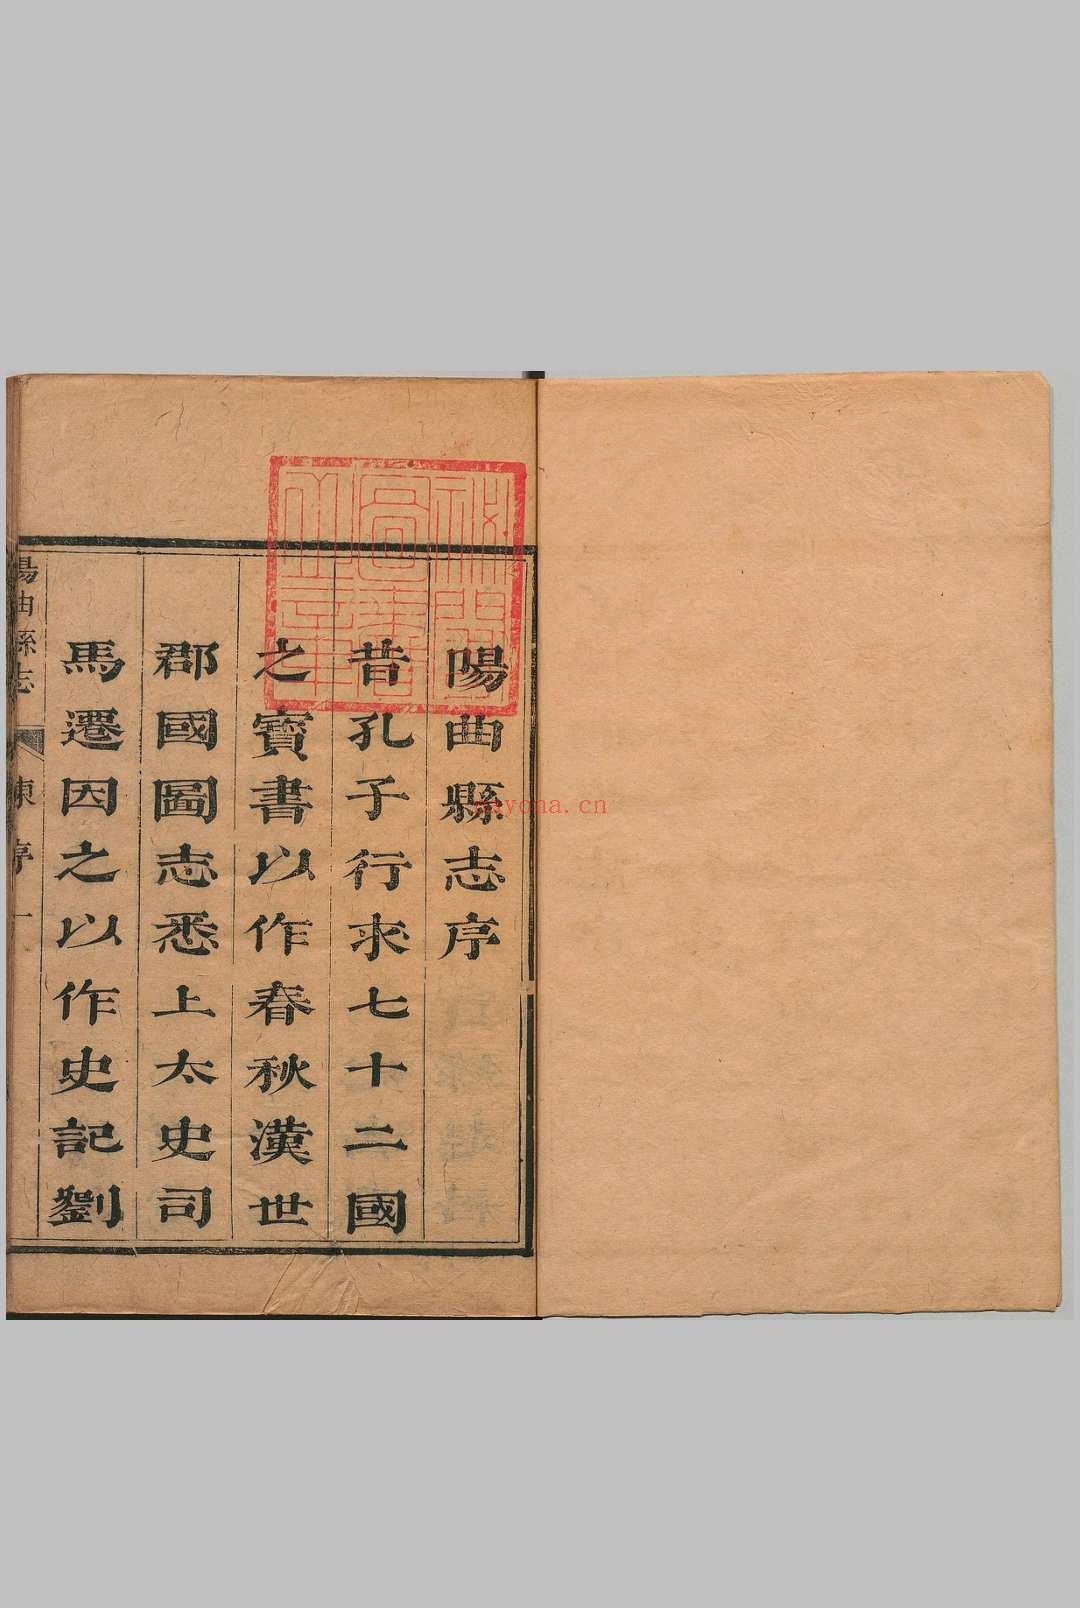 陽曲縣志序
昔孔子行求七十二國
之寶書以作春秋漢世
郡國圖志悉上太史司
馬遷因之以作史記劉
陽曲縣志
序 一